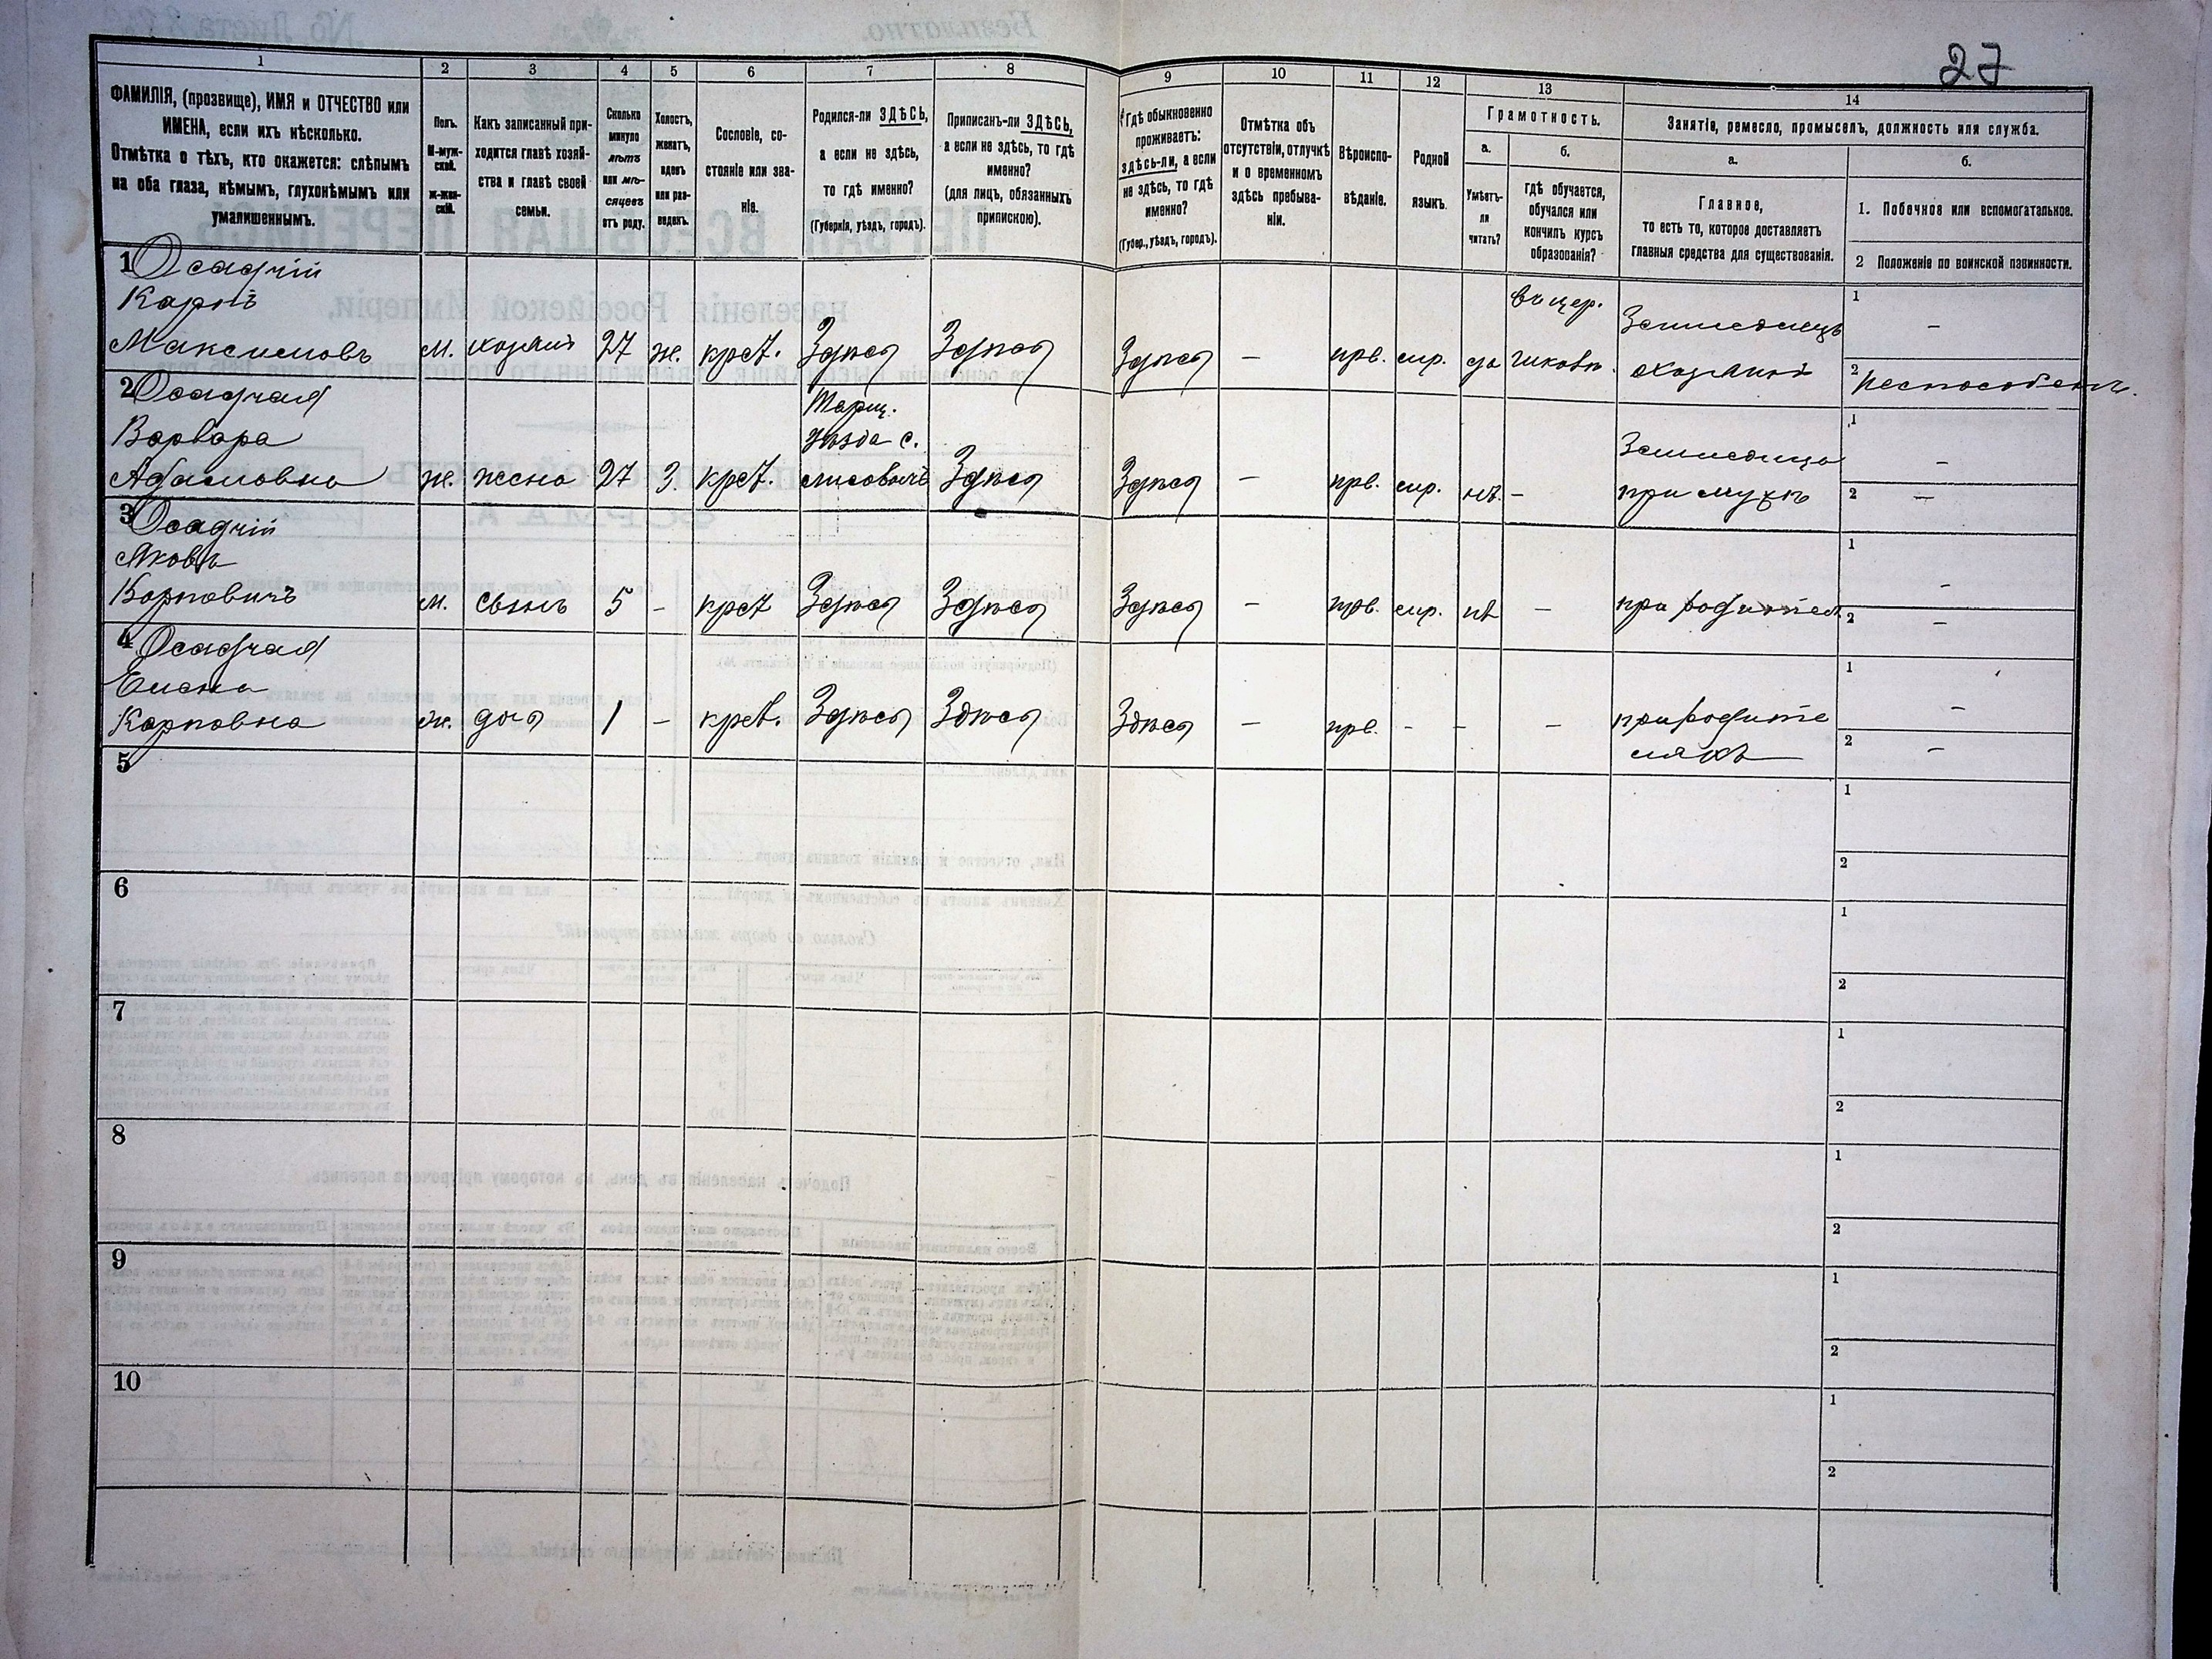 27
1 2 3 4 5 6 7 8 9 10 11 12 13 14
ФАМИЛІЯ, (прозвище), ИМЯ и ОТЧЕСТВО или
ИМЕНА, если ихъ нѣсколько.
Отмѣтка о тѣхъ, кто окажется: слѣпымъ
на оба глаза, нѣмымъ, глухонѣмымъ или
умалишеннымъ.
Полъ.
М-муж-
ской.
ж-жен-
скій.
Какъ записанный при-
ходится главѣ хозяй-
ства и главѣ своей
семьи.
Сколько
минуло
лѣтъ
или мѣ-
сяцевъ
отъ роду.
Холостъ,
женатъ,
вдовъ
или раз-
веденъ.
Сословіе, со-
стояніе или зва-
ніе.
Родился-ли ЗДѢСЬ,
а если не здѣсь,
то гдѣ именно?
(Губернія, уѣздъ, городъ).
Приписанъ-ли ЗДѢСЬ,
а если не здѣсь, то гдѣ
именно?
(для лицъ, обязанныхъ
припискою).
Гдѣ обыкновенно
проживаетъ:
здѣсь-ли, а если
не здѣсь, то гдѣ
именно?
(Губер., уѣздъ, городъ).
Отмѣтка объ
отсутствіи, отлучкѣ
и о временномъ
здѣсь пребыва-
ніи.
Вѣроиспо-
вѣданіе.
Родной
языкъ.
Грамотность.
а.
Умѣетъ-
ли
читать?
б.
гдѣ обучается,
обучался или
кончилъ курсъ
образованія?
Занятіе, ремесло, промыселъ, должность или служба.
а.
Главное,
то есть то, которое доставляетъ
главныя средства для существованія.
б.
1. Побочное или вспомогательное.
2 Положеніе по воинской повинности.
1 Осадчій
Карпъ
Максимовъ м. хозяинъ 27 ж. крест. Здѣсь Здѣсь Здѣсь — прв. мр. да
въ цер.
шковп.
Земледѣлецъ
хозяинъ
1 —
2 неспособенъ.
2 Осадчая
Варвара
Адамовна ж. жена 27 З. крест.
Таращ.
уѣзда с.
Лисовичъ Здѣсь Здѣсь — прв. мр. нѣ. —
Земледѣлица
при мужѣ
1 —
2 —
3 Осадчій
Яковъ
Карповичъ м. сынъ 5 - крест Здѣсь Здѣсь Здѣсь — прв. мр. нѣ —
при родител.
1 -
2 —
4 Осадчая
Елена
Карповна ж. дочь 1 - крест. Здѣсь Здѣсь Здѣсь — прв. - - -
при родите
ляхъ
1 -
2 —
5
1
2
6
1
2
7
1
2
8
1
2
9
1
2
10
1
2